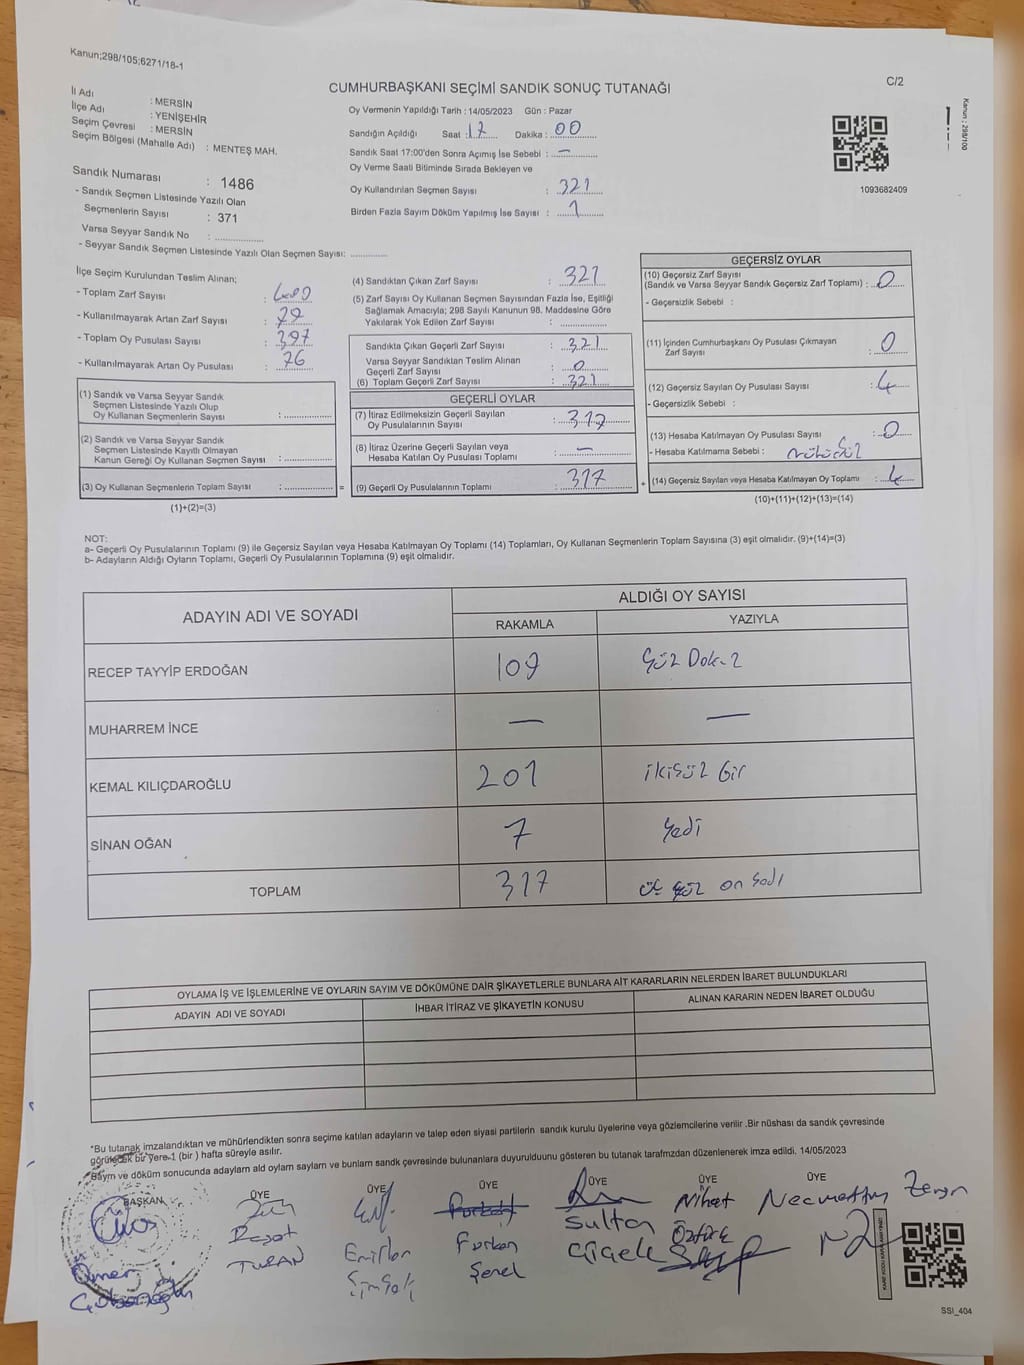 Kanun;298/105;6271/18-1
CUMHURBAŞKANI SEÇİMİ SANDIK SONUÇ TUTANAĞI
C/2
Kanun ; 298/100
İl Adı : MERSİN
İlçe Adı : YENİŞEHİR
Seçim Çevresi : MERSİN
Seçim Bölgesi (Mahalle Adı) : MENTEŞ MAH.
Sandık Numarası : 1486
- Sandık Seçmen Listesinde Yazılı Olan
Seçmenlerin Sayısı : 371
Varsa Seyyar Sandık No :
- Seyyar Sandık Seçmen Listesinde Yazılı Olan Seçmen Sayısı:
Oy Vermenin Yapıldığı Tarih : 14/05/2023 Gün : Pazar
Sandığın Açıldığı Saat : 17 Dakika : 00
Sandık Saat 17:00'den Sonra Açımış İse Sebebi : —
Oy Verme Saati Bitiminde Sırada Bekleyen ve
Oy Kullandırılan Seçmen Sayısı : 321
Birden Fazla Sayım Döküm Yapılmış İse Sayısı : 1
1093682409
İlçe Seçim Kurulundan Teslim Alınan;
- Toplam Zarf Sayısı : 400
- Kullanılmayarak Artan Zarf Sayısı : 79
- Toplam Oy Pusulası Sayısı : 397
- Kullanılmayarak Artan Oy Pusulası : 76
(1) Sandık ve Varsa Seyyar Sandık
Seçmen Listesinde Yazılı Olup
Oy Kullanan Seçmenlerin Sayısı :
(2) Sandık ve Varsa Seyyar Sandık
Seçmen Listesinde Kayıtlı Olmayan
Kanun Gereği Oy Kullanan Seçmen Sayısı :
(3) Oy Kullanan Seçmenlerin Toplam Sayısı : =
(1)+(2)=(3)
(4) Sandıktan Çıkan Zarf Sayısı : 321
(5) Zarf Sayısı Oy Kullanan Seçmen Sayısından Fazla İse, Eşitliği
Sağlamak Amacıyla; 298 Sayılı Kanunun 98. Maddesine Göre
Yakılarak Yok Edilen Zarf Sayısı :
Sandıkta Çıkan Geçerli Zarf Sayısı : 321
Varsa Seyyar Sandıktan Teslim Alınan
Geçerli Zarf Sayısı : 0
(6) Toplam Geçerli Zarf Sayısı : 321
GEÇERLİ OYLAR
(7) İtiraz Edilmeksizin Geçerli Sayılan
Oy Pusulalarının Sayısı : 317
(8) İtiraz Üzerine Geçerli Sayılan veya
Hesaba Katılan Oy Pusulası Toplamı : —
(9) Geçerli Oy Pusulalarının Toplamı : 317 +
GEÇERSİZ OYLAR
(10) Geçersiz Zarf Sayısı
(Sandık ve Varsa Seyyar Sandık Geçersiz Zarf Toplamı) : 0
- Geçersizlik Sebebi :
(11) İçinden Cumhurbaşkanı Oy Pusulası Çıkmayan
Zarf Sayısı : 0
(12) Geçersiz Sayılan Oy Pusulası Sayısı : 4
- Geçersizlik Sebebi :
(13) Hesaba Katılmayan Oy Pusulası Sayısı : 0
- Hesaba Katılmama Sebebi :
(14) Geçersiz Sayılan veya Hesaba Katılmayan Oy Toplamı : 4
(10)+(11)+(12)+(13)=(14)
NOT:
a- Geçerli Oy Pusulalarının Toplamı (9) ile Geçersiz Sayılan veya Hesaba Katılmayan Oy Toplamı (14) Toplamları, Oy Kullanan Seçmenlerin Toplam Sayısına (3) eşit olmalıdır. (9)+(14)=(3)
b- Adayların Aldığı Oyların Toplamı, Geçerli Oy Pusulalarının Toplamına (9) eşit olmalıdır.
ADAYIN ADI VE SOYADI ALDIĞI OY SAYISI
RAKAMLA YAZIYLA
RECEP TAYYİP ERDOĞAN 109 Yüz Dokuz
MUHARREM İNCE — —
KEMAL KILIÇDAROĞLU 201 ikiyüz bir
SİNAN OĞAN 7 yedi
TOPLAM 317 üç yüz on yedi
OYLAMA İŞ VE İŞLEMLERİNE VE OYLARIN SAYIM VE DÖKÜMÜNE DAİR ŞİKAYETLERLE BUNLARA AİT KARARLARIN NELERDEN İBARET BULUNDUKLARI
ADAYIN ADI VE SOYADI İHBAR İTİRAZ VE ŞİKAYETİN KONUSU ALINAN KARARIN NEDEN İBARET OLDUĞU
*Bu tutanak imzalandıktan ve mühürlendikten sonra seçime katılan adayların ve talep eden siyasi partilerin sandık kurulu üyelerine veya gözlemcilerine verilir .Bir nüshası da sandık çevresinde
görülecek bir yere 1 (bir ) hafta süreyle asılır.
Sayım ve döküm sonucunda adayların aldığı oyların sayıları ve bunların sandık çevresinde bulunanlara duyurulduğunu gösteren bu tutanak tarafımızdan düzenlenerek imza edildi. 14/05/2023
BAŞKAN ÜYE ÜYE ÜYE ÜYE ÜYE ÜYE
Ömer
Reşat TURAN
Emirhan Şimşek
Furkan Şenel
Sultan Çiçek
Nihat Öztürk
Necmettin Zengin
SSI_404